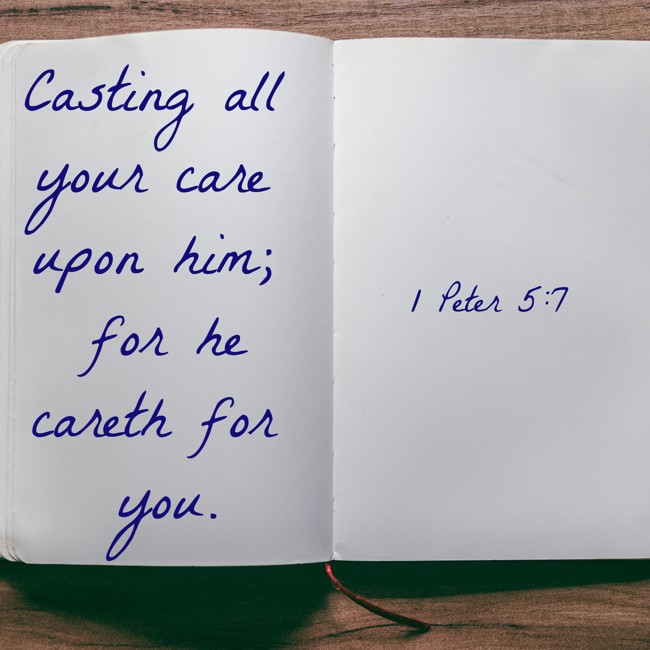 Casting all
your care
upon him;
for he
careth for
you.
1 Peter 5:7